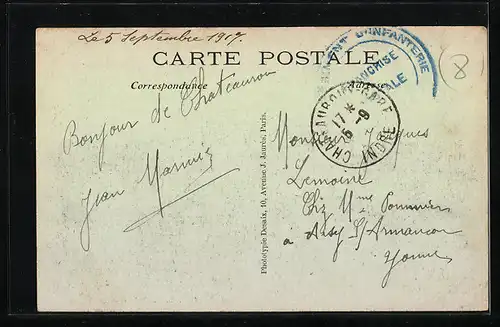 Le 5 Septembre 1917.
CARTE POSTALE
Correspondance
Adresse
D'INFANTERIE
FRANCHISE
8
CHATEAUROUX-GARE
17 *
5-9
INDRE
Bonjour de Chateauroux
Jean
Phototypie Desaix, 10, Avenue J. Jaurès, Paris.
Monsieur Jacques
Lemoine
Chz Mme
à S/Armancon
Yonne